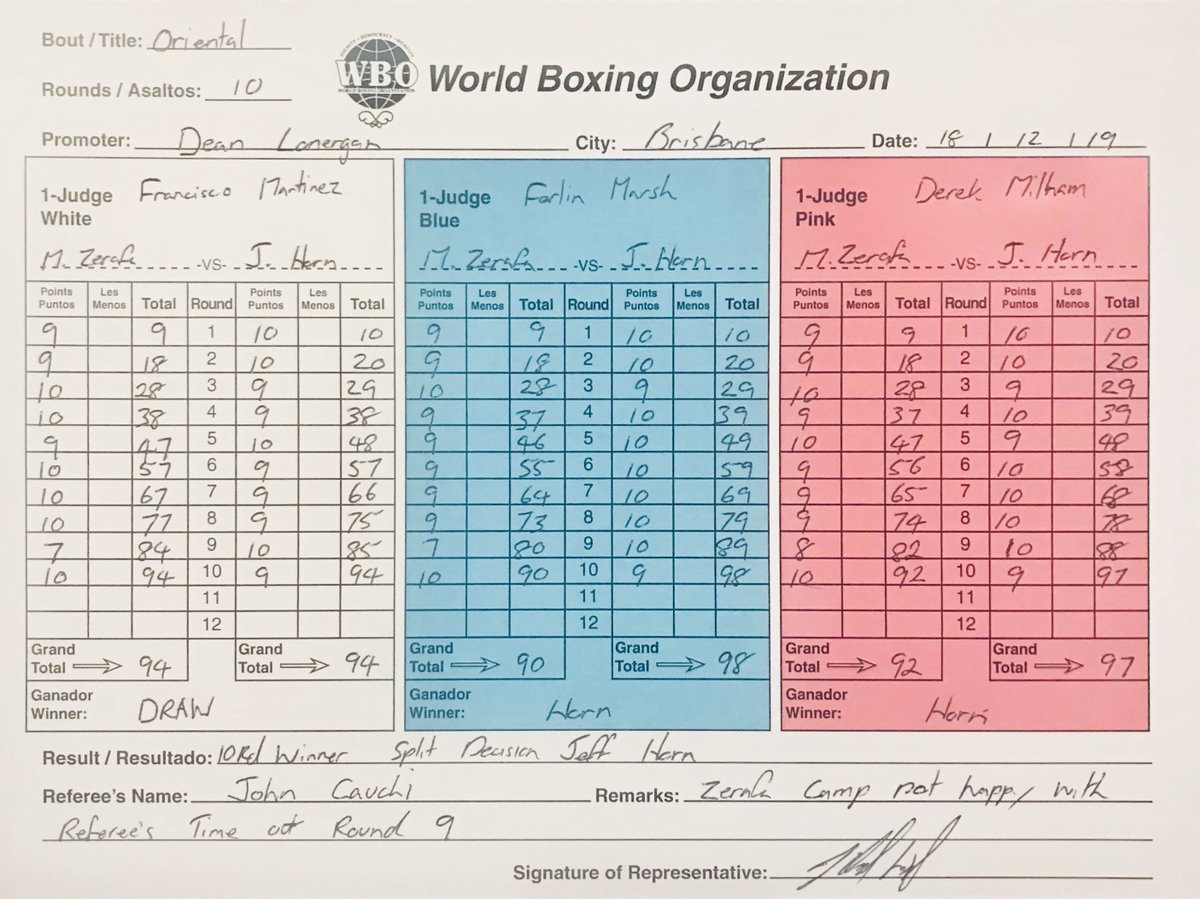 Bout / Title: Oriental
Rounds / Asaltos: 10
WBO
WORLD BOXING ORGANIZATION
World Boxing Organization
Promoter: Dean Lonergan City: Brisbane Date: 18 / 12 / 19
1-Judge White Francisco Martinez
M. Zerafa -VS- J. Horn
Points Puntos Les Menos Total Round Points Puntos Les Menos Total
9 9 1 10 10
9 18 2 10 20
10 28 3 9 29
10 38 4 9 38
9 47 5 10 48
10 57 6 9 57
10 67 7 9 66
10 77 8 9 75
7 84 9 10 85
10 94 10 9 94
11
12
Grand Total 94 Grand Total 94
Ganador Winner: DRAW
1-Judge Blue Farlin Marsh
M. Zerafa -VS- J. Horn
Points Puntos Les Menos Total Round Points Puntos Les Menos Total
9 9 1 10 10
9 18 2 10 20
10 28 3 9 29
9 37 4 10 39
9 46 5 10 49
9 55 6 10 59
9 64 7 10 69
9 73 8 10 79
7 80 9 10 89
10 90 10 9 98
11
12
Grand Total 90 Grand Total 98
Ganador Winner: Horn
1-Judge Pink Derek Milham
M. Zerafa -VS- J. Horn
Points Puntos Les Menos Total Round Points Puntos Les Menos Total
9 9 1 10 10
9 18 2 10 20
10 28 3 9 29
9 37 4 10 39
10 47 5 9 48
9 56 6 10 58
9 65 7 10 68
9 74 8 10 78
8 82 9 10 88
10 92 10 9 97
11
12
Grand Total 92 Grand Total 97
Ganador Winner: Horn
Result / Resultado: 10Rd Winner Split Decision Jeff Horn
Referee's Name: John Cauchi Remarks: Zerafa Camp not happy with
Referee's Time at Round 9
Signature of Representative: